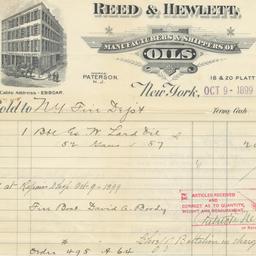 REED & HEWLETT,
MANUFACTURERS & SHIPPERS OF
OILS
WORKS
PATERSON,
N. J.
18 & 20 PLATT
Cable Address - ESBCAR.
New York, OCT 9 - 1899
Sold to N Y Fire Dept
Terms Cash
1 Bbl Ex W Lard Oil
52 Galls 57
at Repair Shop Oct. 9 - 1899
ARTICLES RECEIVED
AND
CORRECT AS TO QUANTITY,
WEIGHT AND MEASUREMENT.
Fire Boat David A. Boody
in charge
Order 495 A 64